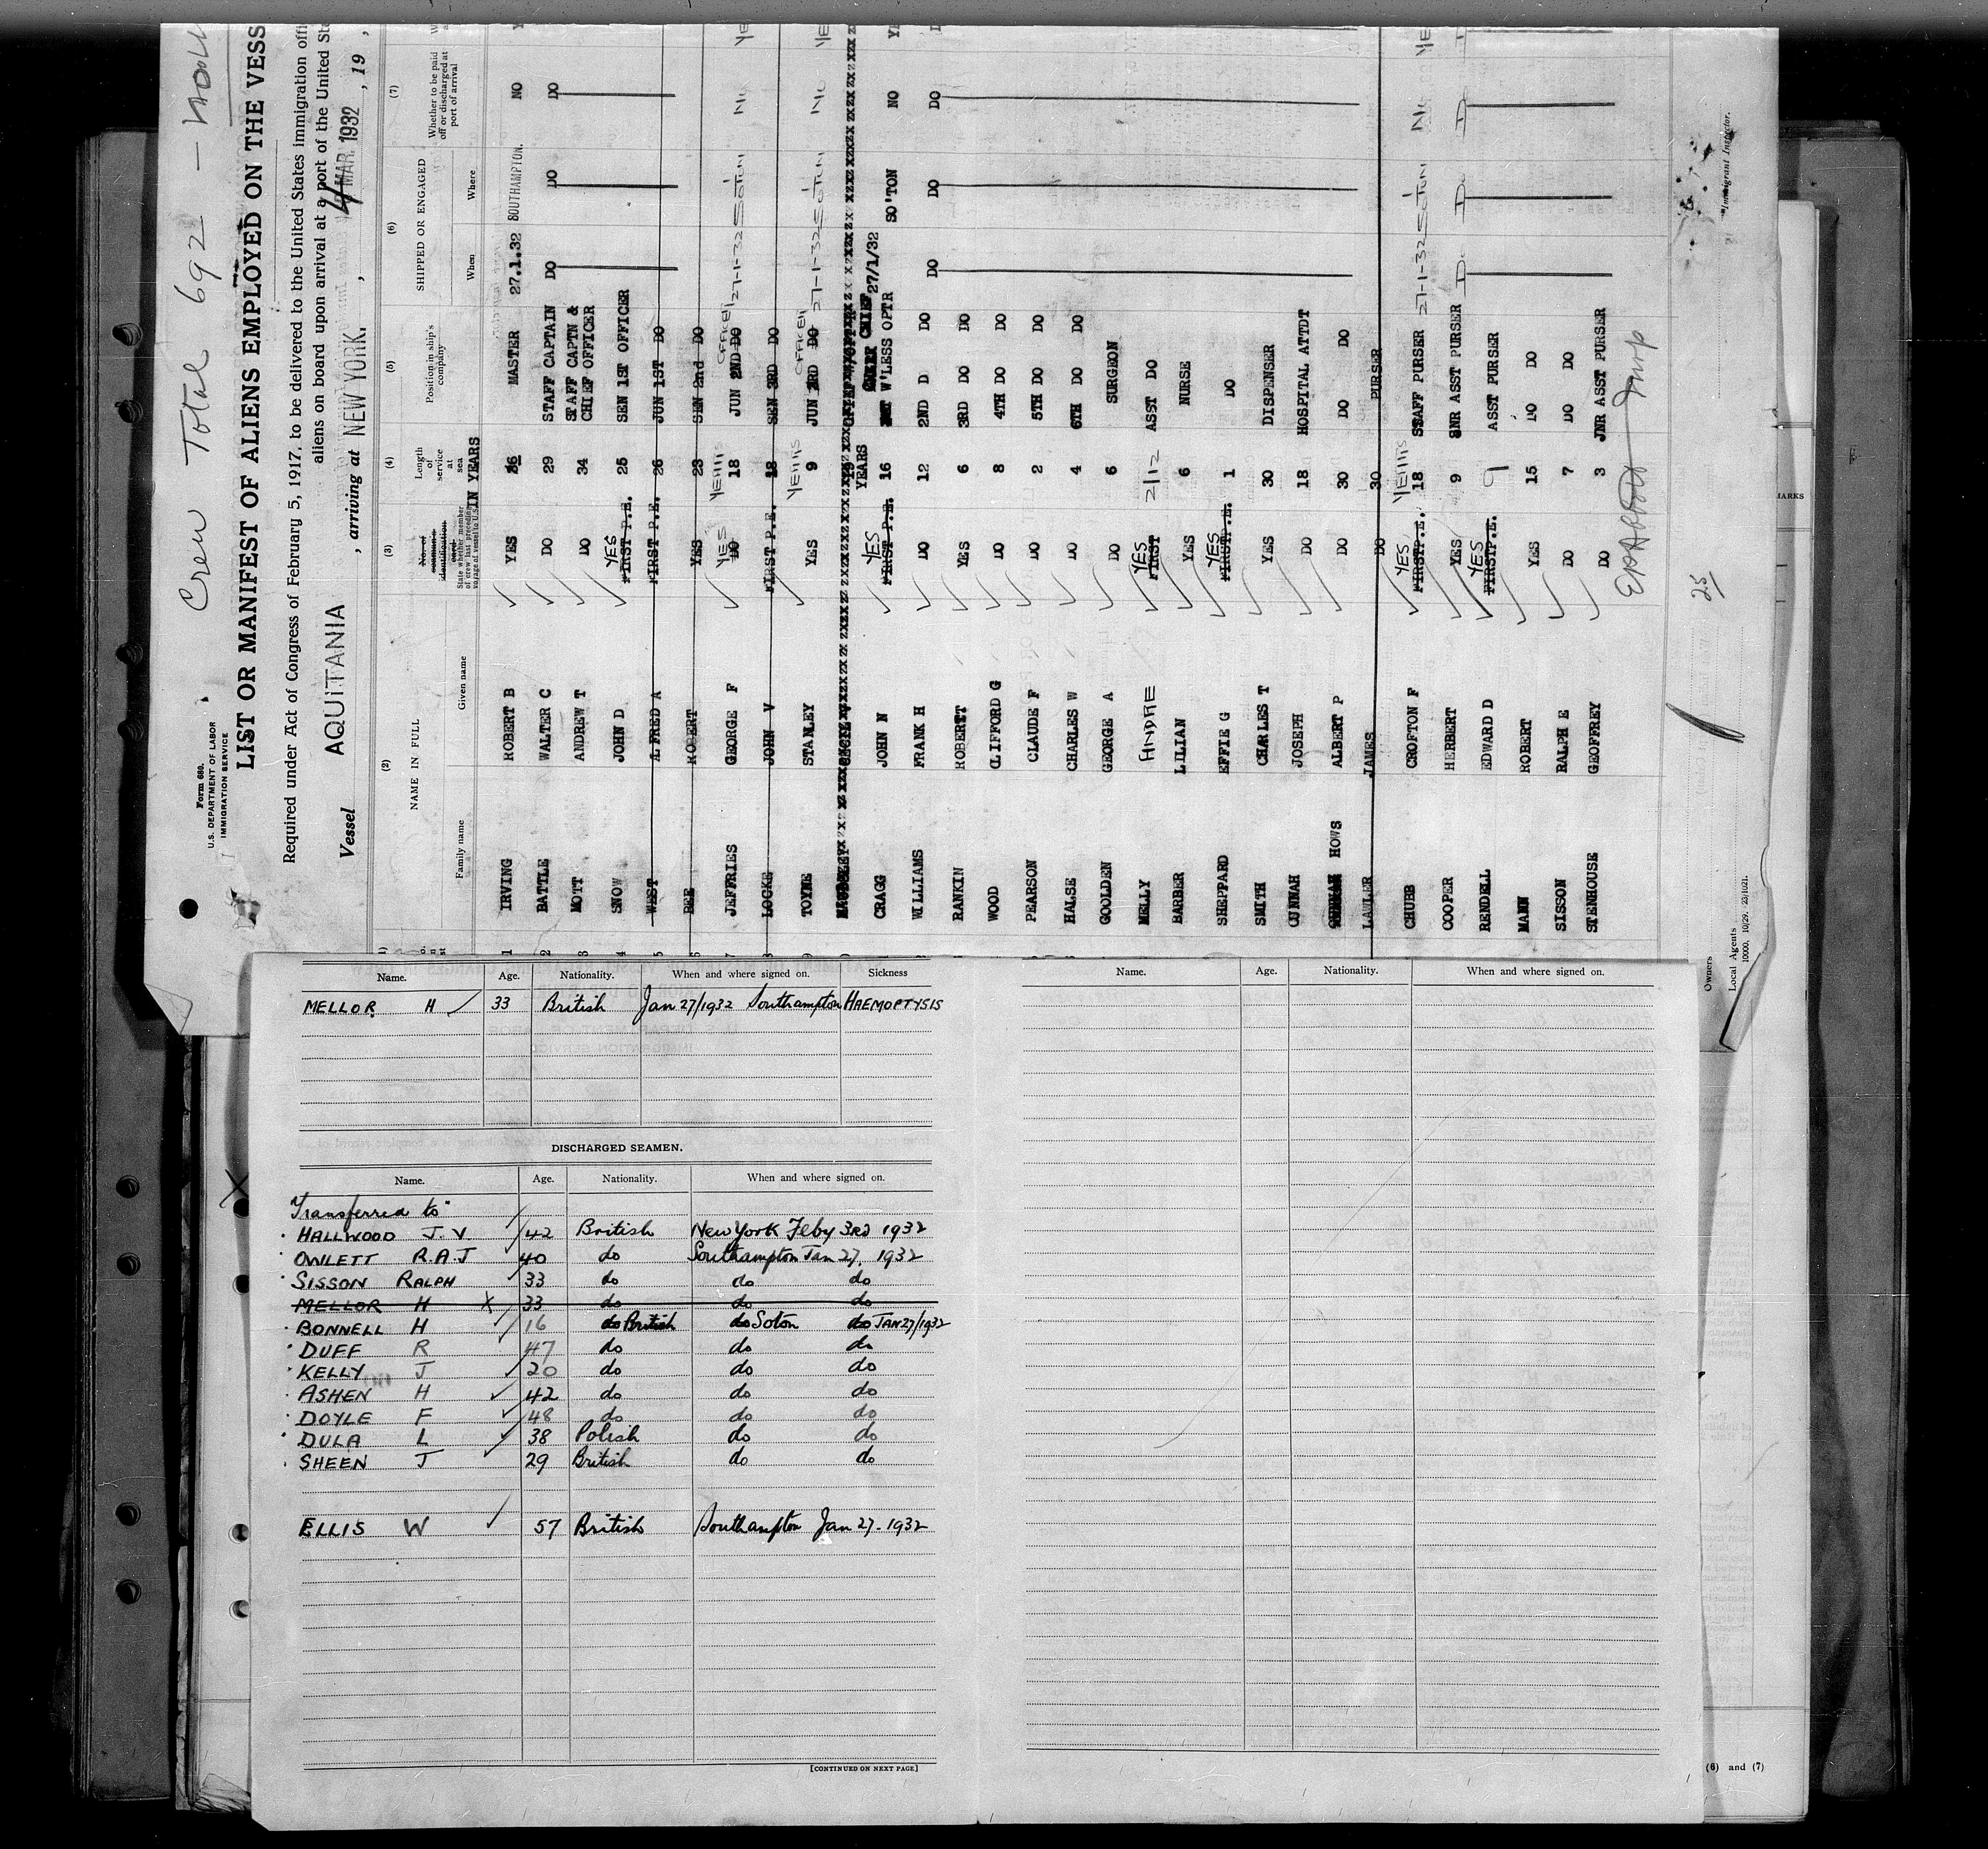 Crew Total 692 —
Form 680.
U.S. DEPARTMENT OF LABOR
IMMIGRATION SERVICE
LIST OR MANIFEST OF ALIENS EMPLOYED ON THE VESS
Required under Act of Congress of February 5, 1917, to be delivered to the United States immigration offi
aliens on board upon arrival at a port of the United Sta
Vessel AQUITANIA , arriving at NEW YORK. , 4 MAR. 1932 , 19 ,
(2) (3) (4) (5) (6) (7)
NAME IN FULL No. of seaman's identification card Length of service at sea Position in ship's company SHIPPED OR ENGAGED Whether to be paid off or discharged at port of arrival
Family name Given name State whether member of crew last preceding voyage of vessel to U.S. IN YEARS When Where
1 IRVING ROBERT B YES 36 MASTER 27.1.32 SOUTHAMPTON. NO
2 BATTLE WALTER C DO 29 STAFF CAPTAIN DO DO DO
3 MOTT ANDREW T DO 34 STAFF CAPTN & CHIEF OFFICER
4 SNOW JOHN D YES FIRST P.E. 25 SEN 1ST OFFICER
5 WEST ALFRED A FIRST P.E. 26 JUN 1ST DO
6 BEE ROBERT YES 23 SEN 2nd DO
7 JEFFRIES GEORGE F YES DO 18 JUN 2ND DO OFFICER 27-1-32 SOTON
8 LOCKE JOHN V FIRST P.E. 18 SEN 3RD DO
9 TOYNE STANLEY YES 9 JUN 3RD DO OFFICER 27-1-32 SOTON
CRAGG JOHN N YES FIRST P.E. YEARS 16 CHIEF W'LESS OPTR 27/1/32 SO'TON NO
WILLIAMS FRANK H DO 12 2ND D DO DO DO DO
RANKIN ROBERT YES 6 3RD DO DO
WOOD CLIFFORD G DO 8 4TH DO DO
PEARSON CLAUDE F DO 2 5TH DO DO
HALSE CHARLES W DO 4 6TH DO DO
GOOLDEN GEORGE A DO 6 SURGEON
MELLY ANDRE YES FIRST 2/12 ASST DO
BARBER LILIAN YES 6 NURSE
SHEPPARD EFFIE G YES FIRST P.E. 1 DO
SMITH CHARLES T YES 30 DISPENSER
CUNNAH JOSEPH DO 18 HOSPITAL ATTDT
HOWS ALBERT P DO 30 DO DO
LAWLER JAMES DO 30 PURSER
CHUBB CROFTON F YES FIRST P.E. 18 STAFF PURSER 27-1-32 SOTON
COOPER HERBERT YES 9 SNR ASST PURSER
RENDELL EDWARD D YES FIRST P.E. 9 ASST PURSER
MANN ROBERT YES 15 DO DO
SISSON RALPH E DO 7 DO DO
STENHOUSE GEOFFREY DO 3 JNR ASST PURSER
25/
Immigrant Inspector.
Owners
Local Agents
ARKS
Name. Age. Nationality. When and where signed on. Sickness
MELLOR H 33 British Jan 27/1932 Southampton HAEMOPTYSIS
DISCHARGED SEAMEN.
Name. Age. Nationality. When and where signed on.
"Transferred to"
HALLWOOD J. V 42 British New York Feby 3rd 1932
OWLETT R.A.J 40 do Southampton Jan 27. 1932
SISSON RALPH 33 do do do
MELLOR H X 33 do do do
BONNELL H 16 do British do Soton do JAN 27/1932
DUFF R 47 do do do
KELLY J 20 do do do
ASHEN H 42 do do do
DOYLE F 48 do do do
DULA L 38 Polish do do
SHEEN J 29 British do do
ELLIS W 57 British Southampton Jan 27. 1932
[CONTINUED ON NEXT PAGE]
Name. Age. Nationality. When and where signed on.
(6) and (7)